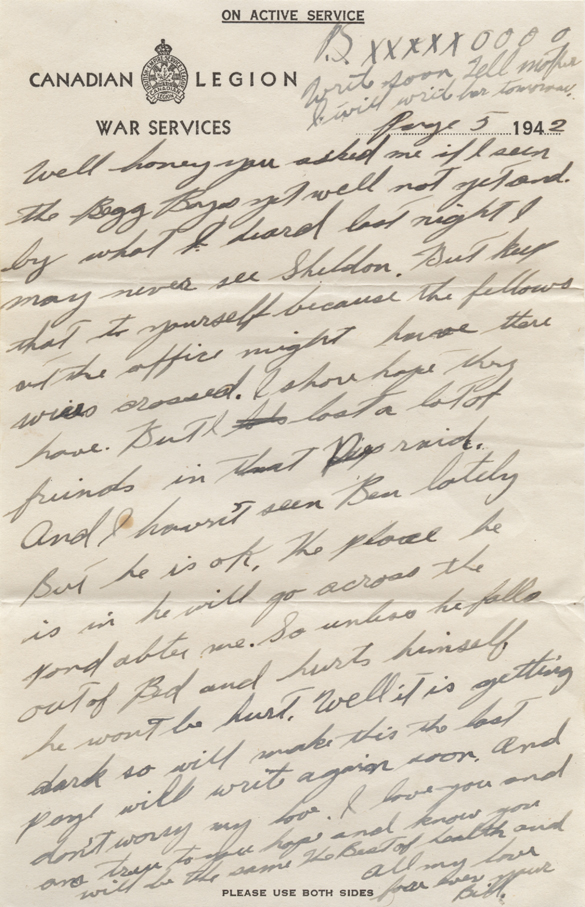 ON ACTIVE SERVICE
B. XXXXX O O O O
Write soon Tell mother
I will write her tomorrow.
CANADIAN LEGION
WAR SERVICES
Page 5 1942
Well honey you asked me if I seen
the Begg Boys yet well not yet and.
by what I heard last night I
may never see Sheldon. But keep
that to yourself because the fellows
at the office might have there
wires crossed. I shore hope they
have. But I lost a lot of
friends in that raid.
And I havn't seen Ben lately
But he is ok, the place he
is in he will go across the
pond abter me. So unless he falls
out of Bed and hurts himself
he wont be hurt. Well it is getting
dark so will make this the last
page will write again soon. And
don't worry my love. I love you and
am true to you hope and know you
will be the same the Best of health and
All my love
for ever your
Bill.
PLEASE USE BOTH SIDES